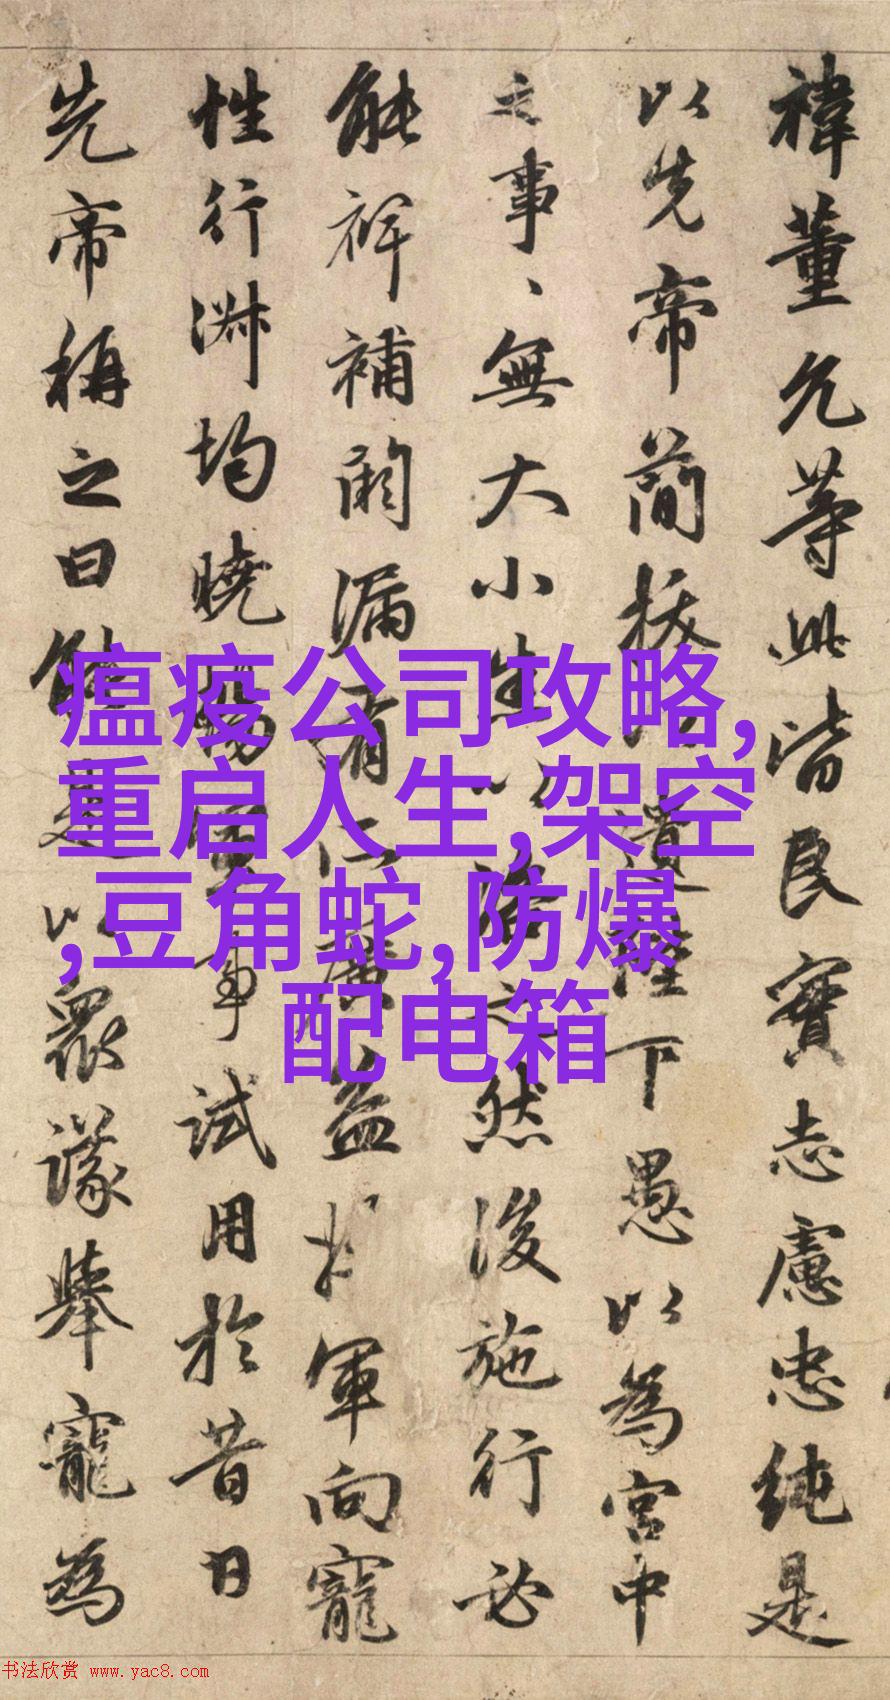 禕董允等此皆良實志慮忠純是
以先帝簡拔以遺陛下愚以為宮中
之事、無大小悉以咨之然後施行必
能裨補闕漏有所廣益將軍向寵
性行淑均曉暢軍事試用於昔日
先帝稱之曰能是以衆議舉寵為
瘟疫公司攻略,
重启人生,架空
,豆角蛇,防爆
配电箱
书法欣赏 www.yac8.com